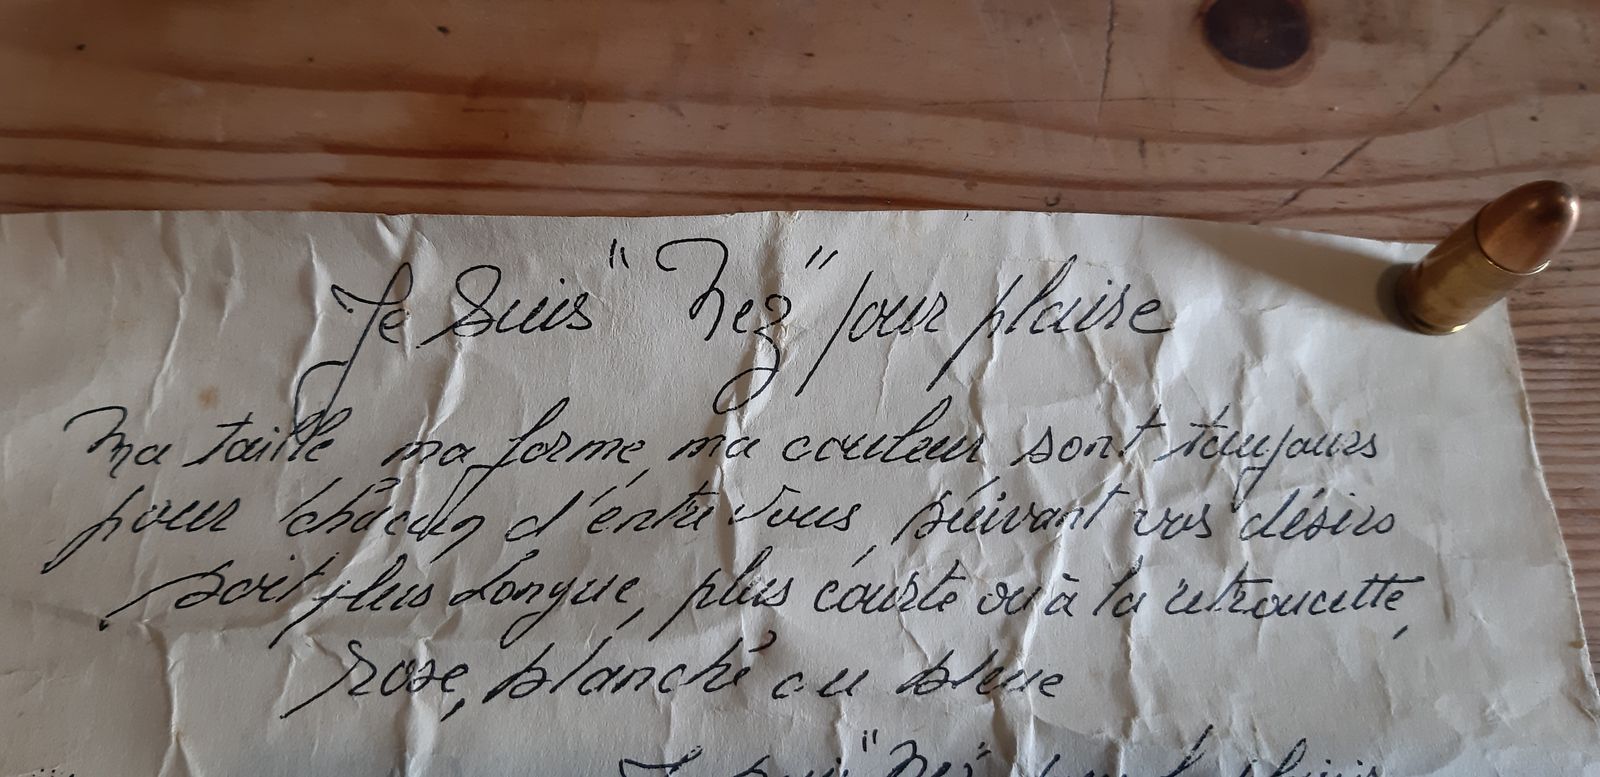 Je Suis "Nez" pour plaire
Ma taille, ma forme, ma couleur, sont toujours
pour châcun d'entre Vous, suivant vos désirs
soit plus Longue, plus courte ou à la retroucette,
rose, blanche ou bleue
Je suis "Nez" pour le plaisir